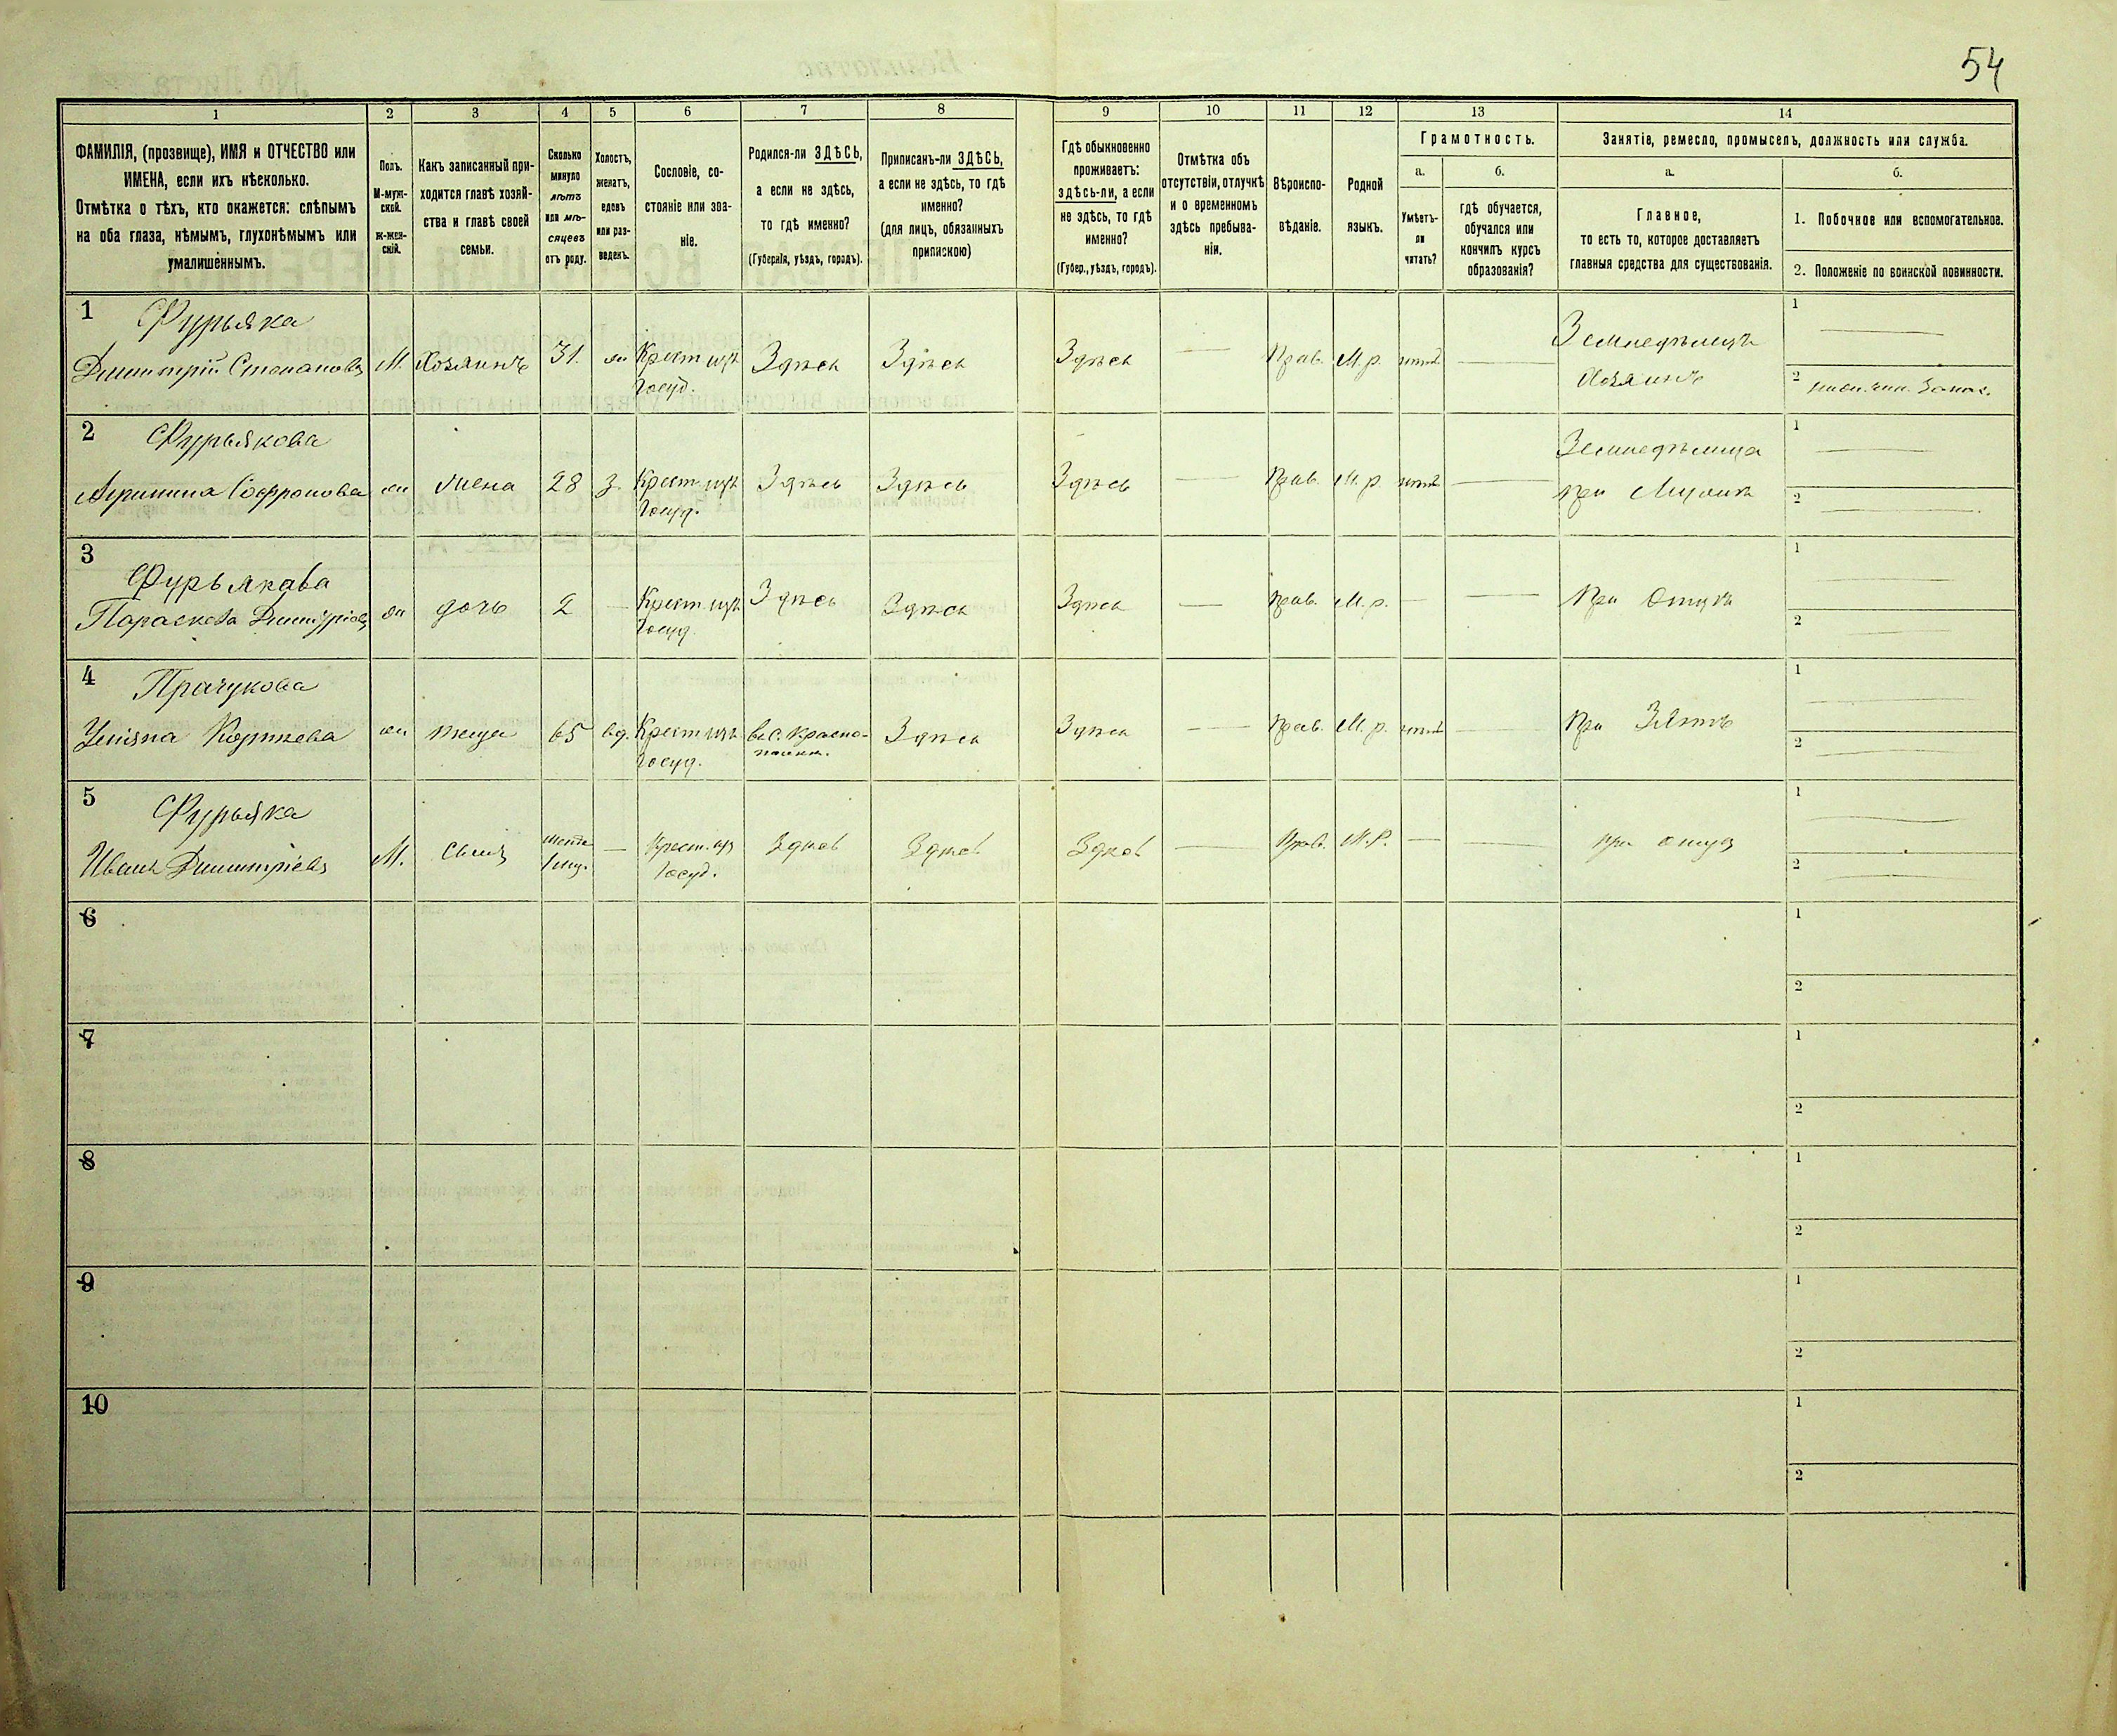 54
1 2 3 4 5 6 7 8 9 10 11 12 13 14
ФАМИЛІЯ, (прозвище), ИМЯ и ОТЧЕСТВО или
ИМЕНА, если ихъ нѣсколько.
Отмѣтка о тѣхъ, кто окажется: слѣпымъ
на оба глаза, нѣмымъ, глухонѣмымъ или
умалишеннымъ.
Полъ.
М-муж-
ской.
ж-жен-
скій.
Какъ записанный при-
ходится главѣ хозяй-
ства и главѣ своей
семьи.
Сколько
минуло
лѣтъ
или мѣ-
сяцевъ
отъ роду.
Холостъ,
женатъ,
вдовъ
или раз-
веденъ.
Сословіе, со-
стояніе или зва-
ніе.
Родился-ли ЗДѢСЬ,
а если не здѣсь,
то гдѣ именно?
(Губернія, уѣздъ, городъ).
Приписанъ-ли ЗДѢСЬ,
а если не здѣсь, то гдѣ
именно?
(для лицъ, обязанныхъ
припискою)
Гдѣ обыкновенно
проживаетъ:
здѣсь-ли, а если
не здѣсь, то гдѣ
именно?
(Губер., уѣздъ, городъ).
Отмѣтка объ
отсутствіи, отлучкѣ
и о временномъ
здѣсь пребыва-
ніи.
Вѣроиспо-
вѣданіе.
Родной
языкъ.
Грамотность.
а.
Умѣетъ-
ли
читать?
б.
гдѣ обучается,
обучался или
кончилъ курсъ
образованія?
Занятіе, ремесло, промыселъ, должность или служба.
а.
Главное,
то есть то, которое доставляетъ
главныя средства для существованія.
б.
1. Побочное или вспомогательное.
2. Положеніе по воинской повинности.
1 Фурьяка 1
Димитрій Степановъ М. Хозяинъ 31. жн Крест. изъ Здѣсь Здѣсь Здѣсь — Прав. М.р. — Земледѣлецъ
Госуд. Хозяинъ 2
2 Фурьякова 1
Софронова жн Жена 28 з. Крест. изъ Здѣсь Здѣсь Здѣсь — Прав. М.р — Земледѣлица
Госуд. при Мужикъ 2
3 Фурьякава 1
Параскева Димитріева жн дочь 2 — Крест. изъ Здѣсь Здѣсь Здѣсь — Прав. М.р. — — При Отцѣ
Госуд. 2
4 Прачукова 1
Корнѣева жн теща 65 вд. Крест. изъ въ С. Красно- Здѣсь Здѣсь — Прав. М.р. — При Зятѣ
Госуд. 2
5 Фурьяка 1
Иванъ Димитріевъ М. Сынъ — Крест. из Здѣсь Здѣсь Здѣсь — Прав. М.Р. — — при отцѣ
Госуд. 2
6 1
2
7 1
2
8 1
2
9 1
2
10 1
2